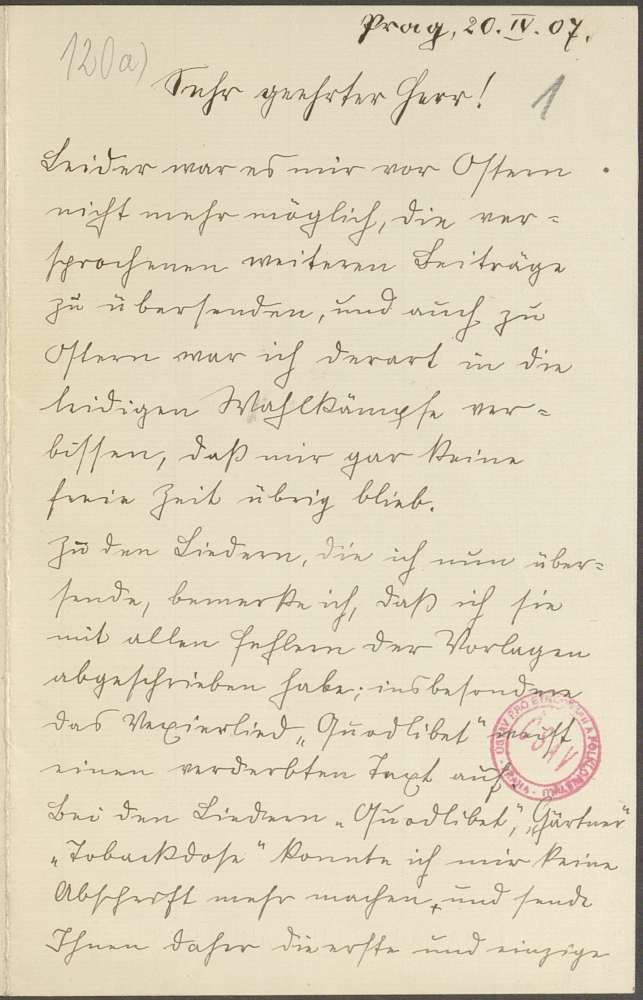 Prag, 20. IV. 07.
120a)
1
Sehr geehrter Herr!
Leider war es mir vor Ostern
nicht mehr möglich, die ver=
sprochenen weiteren Beiträge
zu übersenden, und auch zu
Ostern war ich derart in die
leidigen Wahlkämpfe ver=
bissen, daß mir gar keine
freie Zeit übrig blieb.
Zu den Liedern, die ich nun über=
sende, bemerke ich, daß ich sie
mit allen Fehlern der Vorlagen
abgeschrieben habe; insbesondere
das Vexierlied „Quodlibet" weist
einen verderbten Text auf.
Bei den Liedern „Quodlibet", „Gärtner"
„Tobackdose" konnte ich mir keine
Abschrift mehr machen, und sende
Ihnen daher die erste und einzige